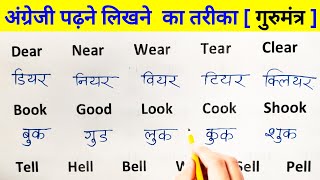 अंग्रेजी पढ़ने लिखने का तरीका [ गुरुमंत्र ]
Dear Near Wear Tear Clear
डियर नियर वियर टियर क्लियर
Book Good Look Cook Shook
बुक गुड लुक कुक शुक
Tell Hell Bell Sell Pell